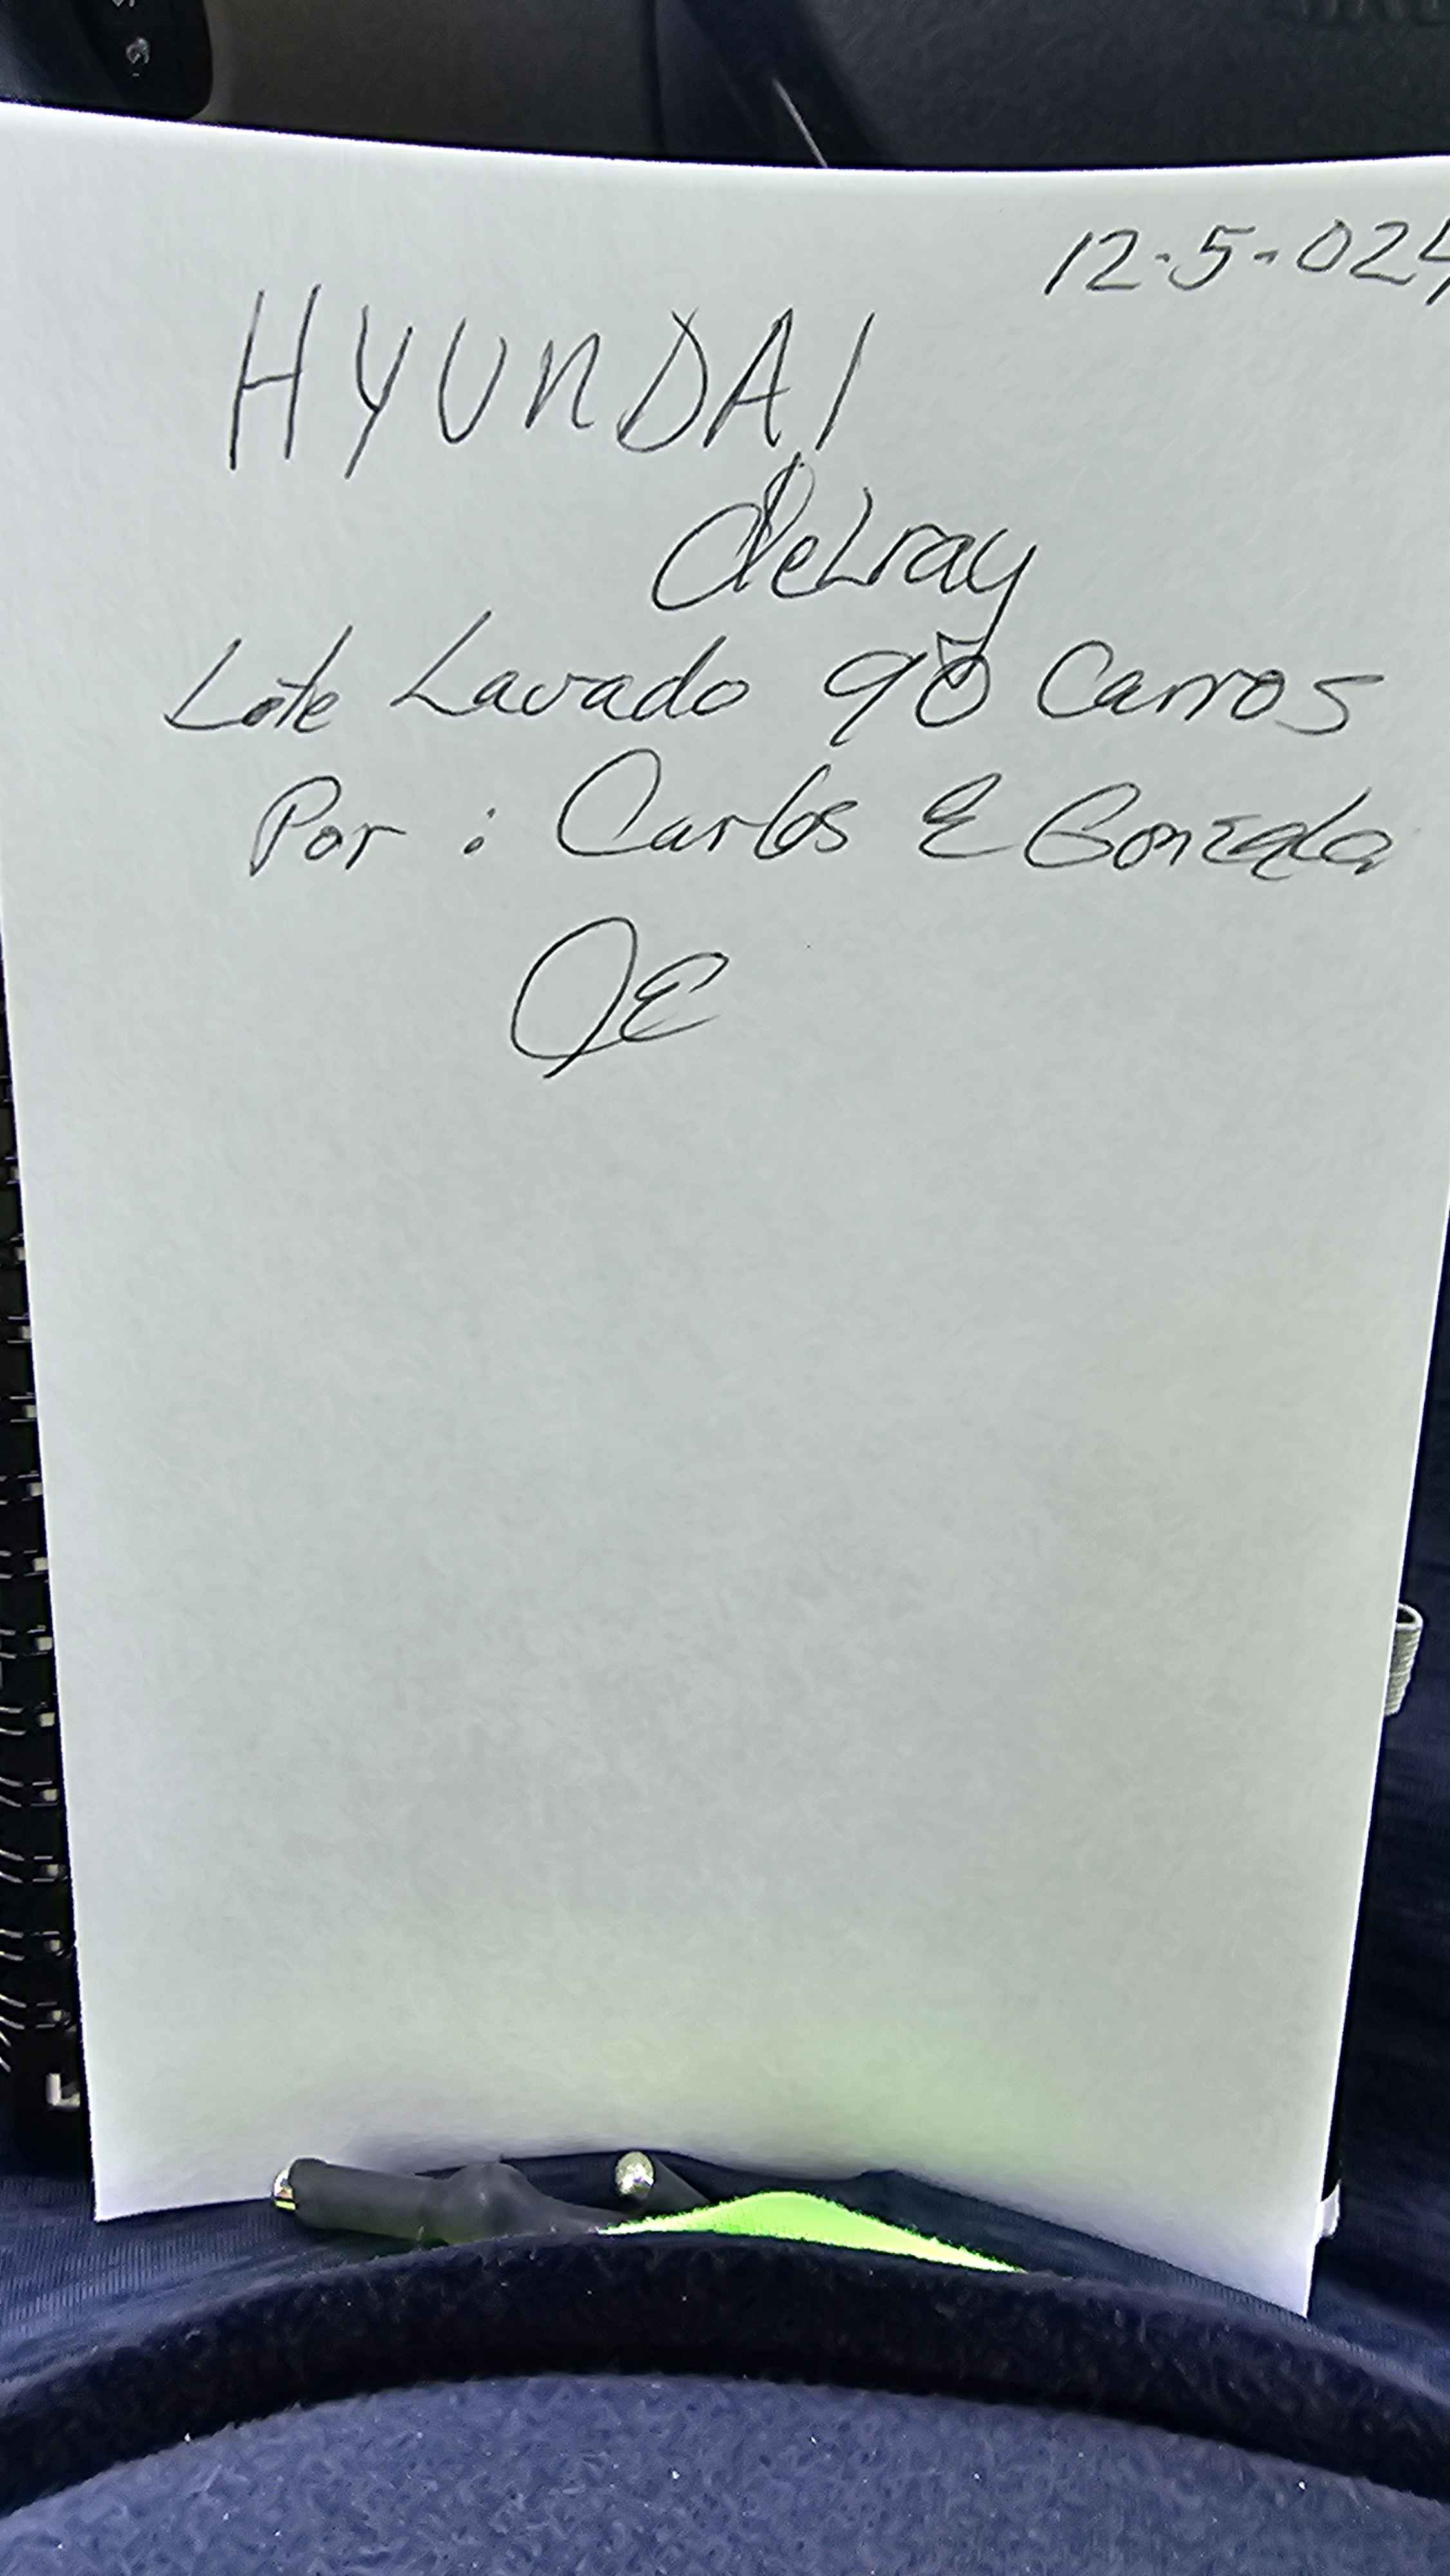 12-5-024
HYUNDAI
delray
Lote Lavado 90 Carros
Por : Carlos E Gonzalo